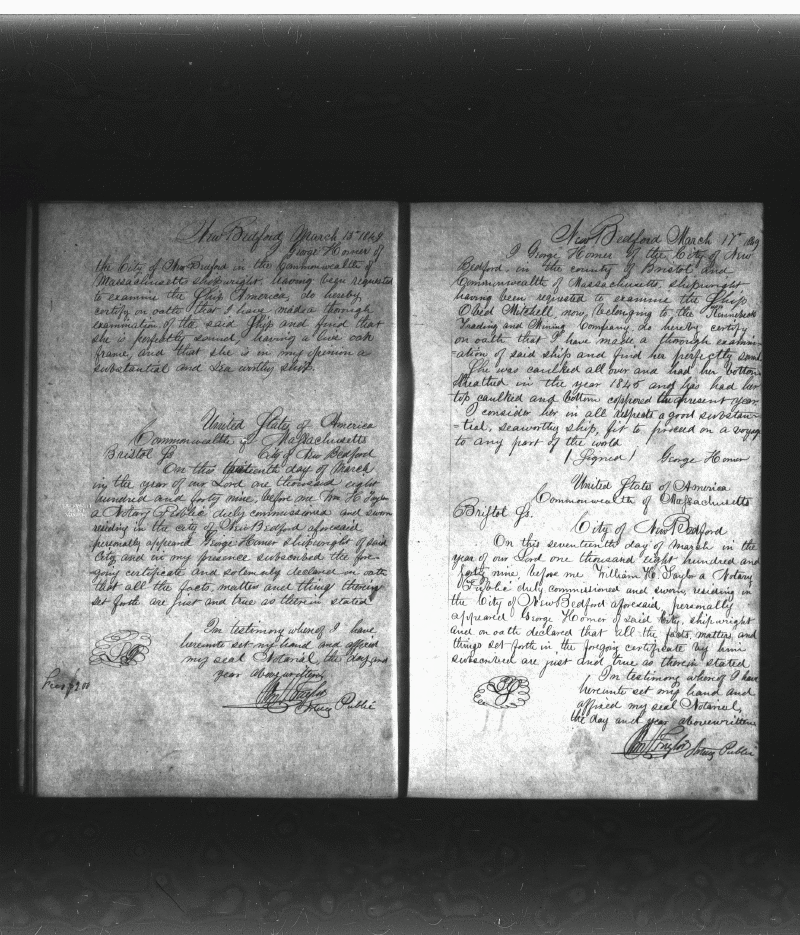 New Bedford March 13th 1849
I George Homer of
the City of New Bedford in the Commonwealth of
Massachusetts shipwright, having been requested
to examine the Ship America, do hereby,
certify on oath that I have made a thorough
examination of the said Ship and find that
she is perfectly sound, having a live oak
frame, and that she is in my opinion a
substantial and sea worthy ship.
United States of America
Commonwealth of Massachusetts
Bristol Ss City of New Bedford
On this thirteenth day of March
in the year of our Lord one thousand eight
hundred and forty nine, before me Wm H. Taylor
a Notary Public duly commissioned and sworn
residing in the city of New Bedford aforesaid
personally appeared George Homer shipwright of said
City, and in my presence subscribed the fore-
going certificate and solemnly declared on oath
that all the facts, matters and things therein
set forth are just and true as therein stated
In testimony whereof I have
hereunto set my hand and affixed
my seal Notarial, the day and
year abovewritten
Wm H Taylor
Notary Public
New Bedford March 17th 1849
I George Homer of the City of New
Bedford in the county of Bristol and
Commonwealth of Massachusetts, shipwright
having been requested to examine the Ship
Obed Mitchell, now, belonging to the Kennebeck
Trading and Mining Company, do hereby certify
on oath that I have made a thorough examin
ation of said ship and find her perfectly sound
She was caulked all over and had her bottom
sheathed in the year 1845 and has had her
top caulked and bottom coppered the present year.
I consider her in all respects a good substan-
=tial, seaworthy ship, fit to proceed on a voyage
to any part of the world
(Signed) George Homer
United States of America
Commonwealth of Massachusetts
Bristol Ss.
City of New Bedford
On this seventeenth day of March in the
year of our Lord one thousand eight hundred and
forty nine, before me William H. Taylor a Notary
Public duly commissioned and sworn, residing in
the City of New Bedford aforesaid, personally
appeared George Homer of said City, shipwright
and on oath declared that all the facts, matters, and
things set forth in the foregoing certificate by him
subscribed are just and true as therein stated
In testimony whereof I have
hereunto set my hand and
affixed my seal Notarial,
the day and year abovewritten
Wm H Taylor Notary Public